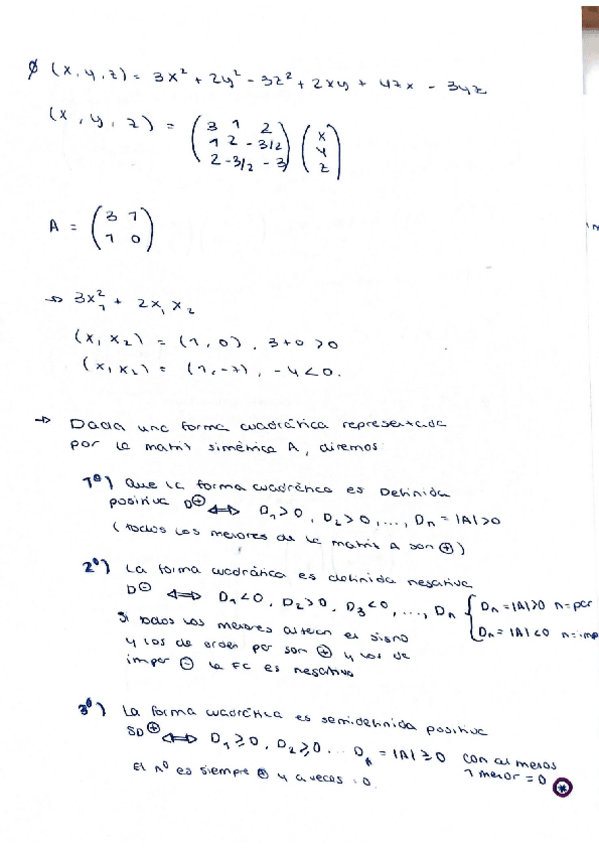 ϕ (x, y, z) = 3x² + 2y² - 3z² + 2xy + 4zx - 3yz
(x, y, z) = (3 1 2
1 2 -3/2
2 -3/2 -3) (x
y
z)
A = (3 1
1 0)
→ 3x₁² + 2x₁ x₂
(x₁ x₂) = (1, 0), 3+0 >0
(x₁ x₂) = (1, -7), -4<0.
→ Dada una forma cuadrática representada
por la matriz simétrica A, diremos:
1º) Que la forma cuadrática es Definida
positiva D⊕ ⟺ D₁>0, D₂>0, ..., Dn = |A|>0
(todos los menores de la matriz A son ⊕)
2º) La forma cuadrática es definida negativa
D⊖ ⟺ D₁<0, D₂>0, D₃<0, ..., Dn { Dn = |A|>0 n=par
Dn = |A|<0 n=imp
Si todos los menores altern el signo
y los de orden par son ⊕ y los de
impar ⊖ la FC es negativa
3º) La forma cuadrática es semidefinida positiva
SD⊕ ⟺ D₁≥0, D₂≥0 ... Dn = |A| ≥0 con al menos
1 menor = 0 ⊛
El nº es siempre ⊕ y a veces 0.